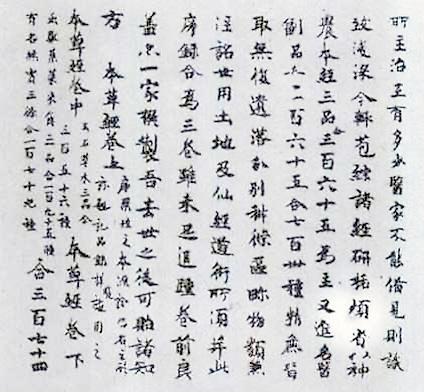 所主治互有多少醫家不能備見則識
致淺深今輒苞綜諸經研括煩省以神
農本經三品合三百六十五為主又進名醫
副品亦三百六十五合七百卅種精麁皆
取無復遺落分別科條區畛物類兼
注詺世用土地及仙經道術所須并此
序録合為三卷雖未足追踵前良
蓋亦一家撰製吾去世之後可貽諸知
方 本草經卷上
序藥性之本源詮病名之形
題記品録詳覽施用之
本草經卷中
玉石草木三品合
三百五十六種
本草經卷下
虫獸菓菜米食三品合一百九十五種
有名無實三條合一百七十九種
合三百七十四